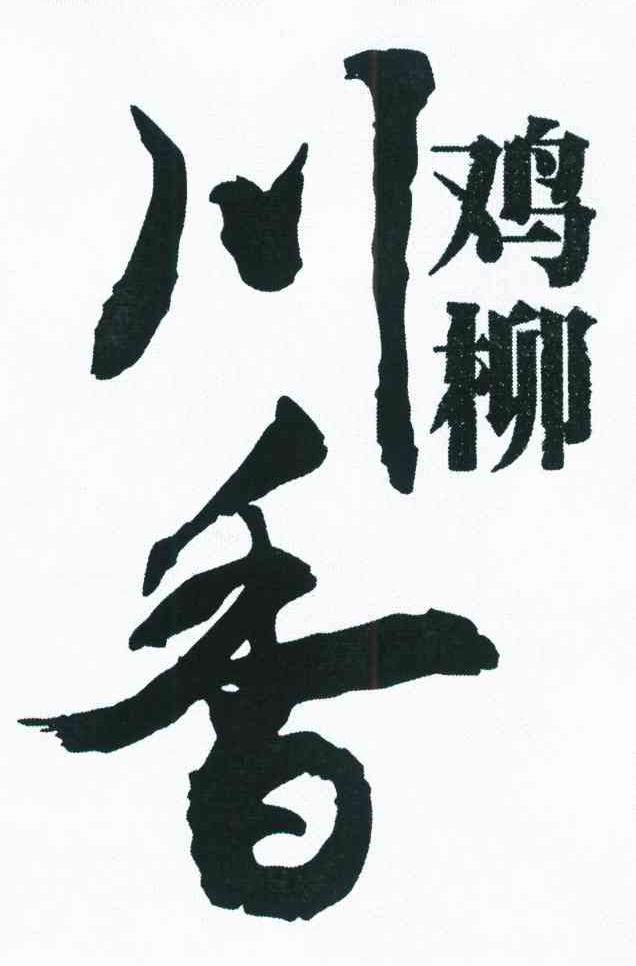 川香
鸡柳